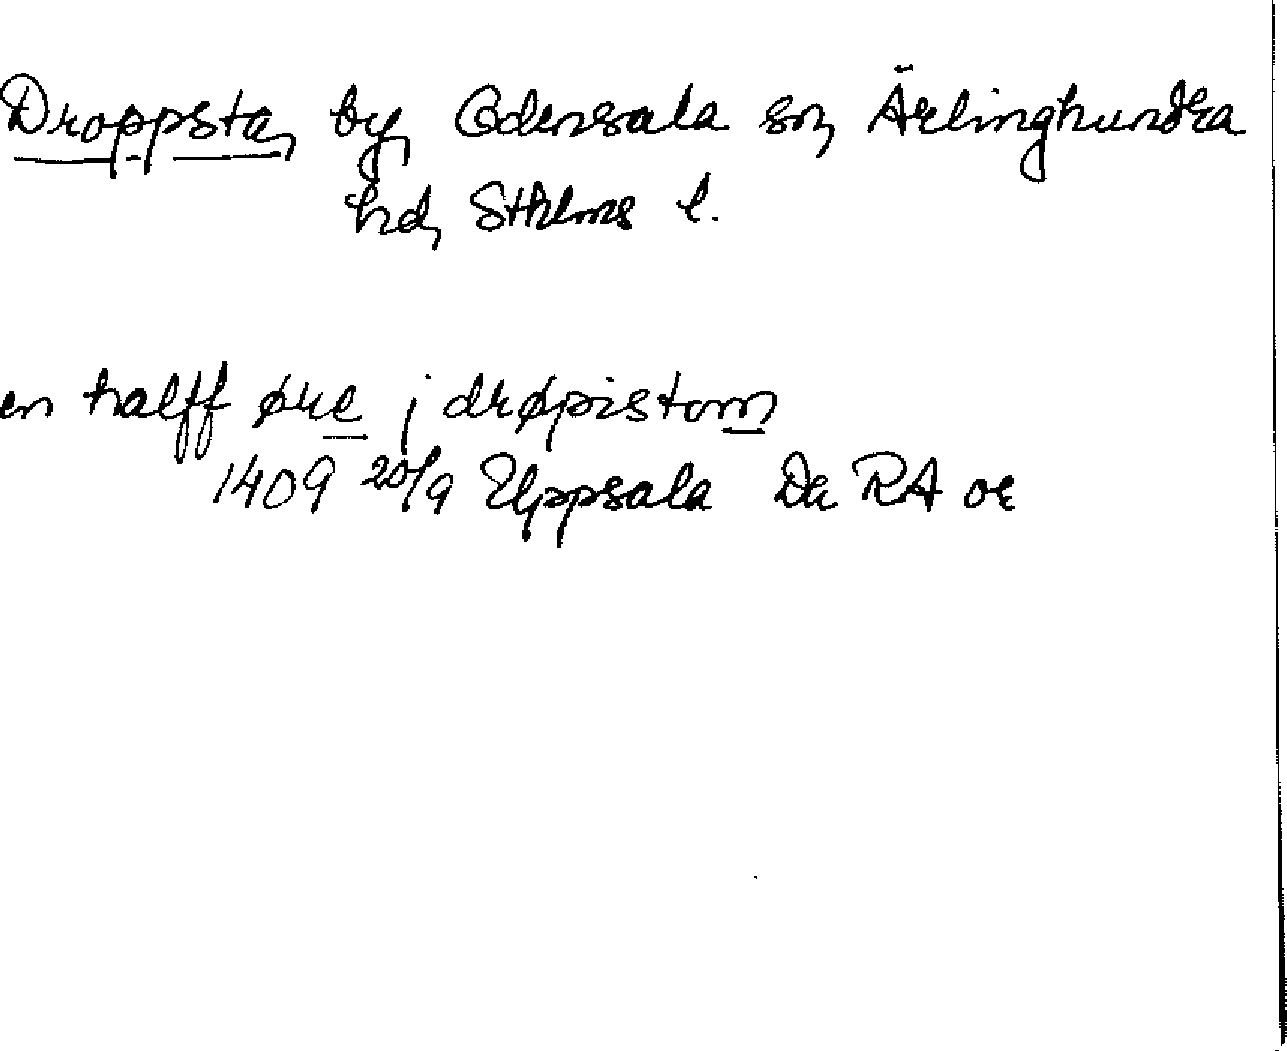 Droppsta, by, Odensala sn, Ärlinghundra
hd, Sthlms l.
en halff øre j drøpistom
1409 20/9 Uppsala Da RA or